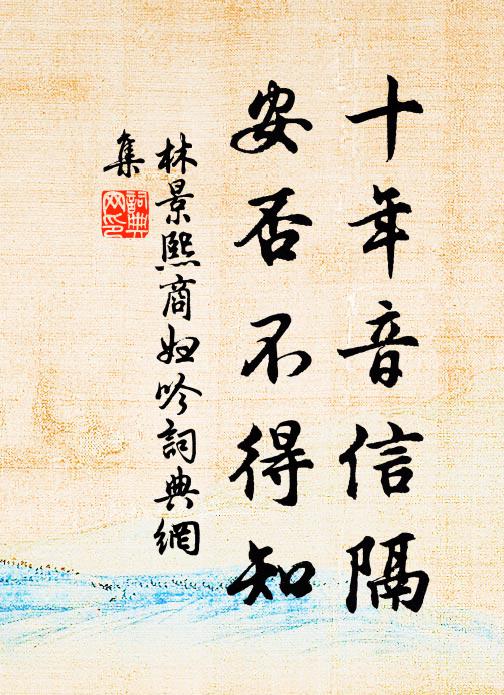 十年音信隔
安否不得知
林景熙商妇吟詞典網
集
詞典
网印